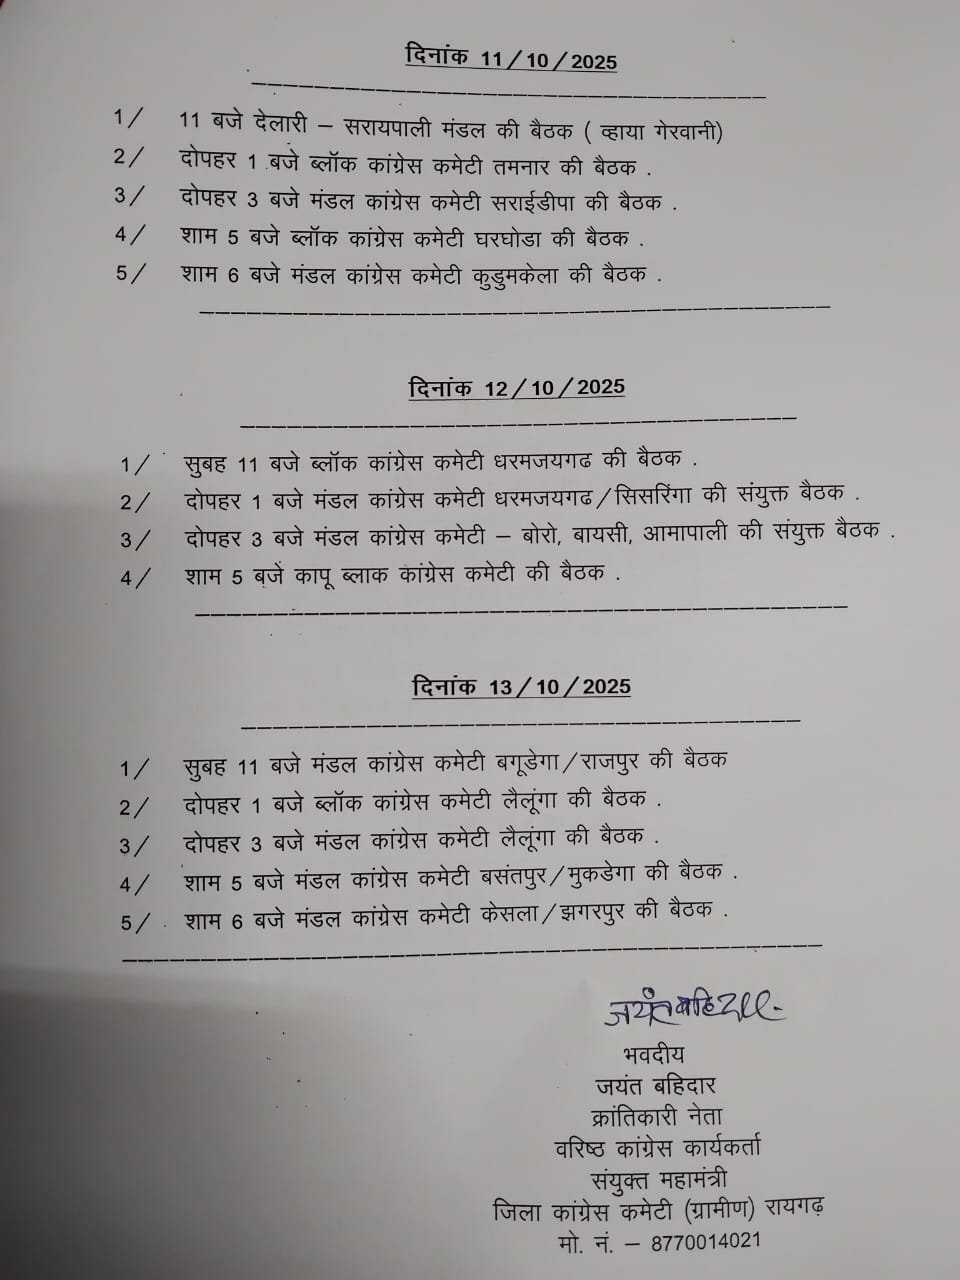 दिनांक 11/10/2025
1/ 11 बजे देलारी – सरायपाली मंडल की बैठक ( व्हाया गेरवानी)
2/ दोपहर 1 बजे ब्लॉक कांग्रेस कमेटी तमनार की बैठक .
3/ दोपहर 3 बजे मंडल कांग्रेस कमेटी सराईडीपा की बैठक .
4/ शाम 5 बजे ब्लॉक कांग्रेस कमेटी घरघोडा की बैठक .
5/ शाम 6 बजे मंडल कांग्रेस कमेटी कुडुमकेला की बैठक .
दिनांक 12/10/2025
1/ सुबह 11 बजे ब्लॉक कांग्रेस कमेटी धरमजयगढ की बैठक .
2/ दोपहर 1 बजे मंडल कांग्रेस कमेटी धरमजयगढ/सिसरिंगा की संयुक्त बैठक .
3/ दोपहर 3 बजे मंडल कांग्रेस कमेटी – बोरो, बायसी, आमापाली की संयुक्त बैठक .
4/ शाम 5 बजें कापू ब्लाक कांग्रेस कमेटी की बैठक .
दिनांक 13/10/2025
1/ सुबह 11 बजे मंडल कांग्रेस कमेटी बगूडेगा/राजपुर की बैठक
2/ दोपहर 1 बजे ब्लॉक कांग्रेस कमेटी लैलूंगा की बैठक .
3/ दोपहर 3 बजे मंडल कांग्रेस कमेटी लैलूंगा की बैठक .
4/ शाम 5 बजे मंडल कांग्रेस कमेटी बसंतपुर/मुकडेगा की बैठक .
5/ शाम 6 बजे मंडल कांग्रेस कमेटी केसला/झगरपुर की बैठक .
जयंत बहिदार
भवदीय
जयंत बहिदार
क्रांतिकारी नेता
वरिष्ठ कांग्रेस कार्यकर्ता
संयुक्त महामंत्री
जिला कांग्रेस कमेटी (ग्रामीण) रायगढ़
मो. नं. – 8770014021